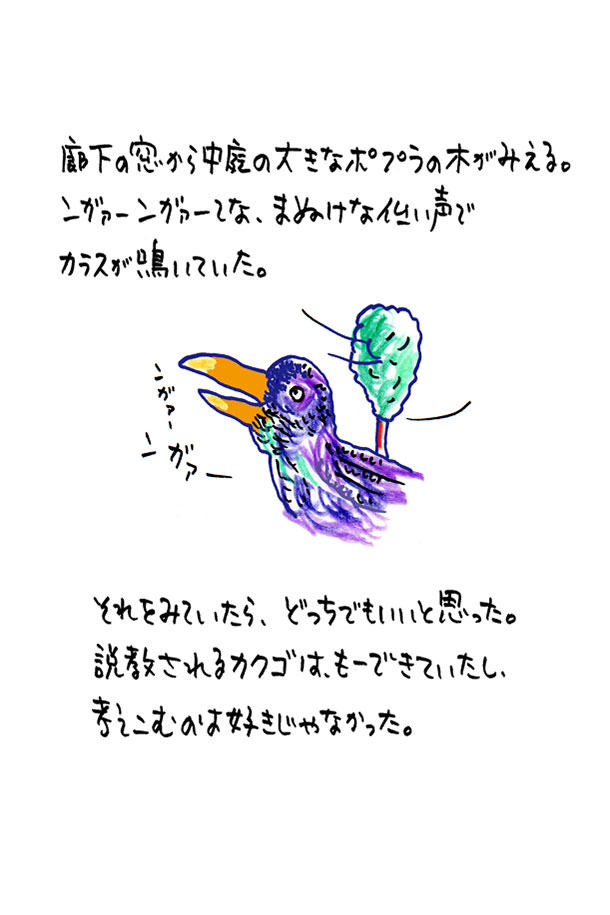 廊下の窓から中庭の大きなポプラの木がみえる。
ンガァーンガァーてな、まぬけな低い声で
カラスが鳴いていた。
ンガァー
ンガァー
それをみていたら、どっちでもいいと思った。
説教されるカクゴは、もーできていたし、
考えこむのは好きじゃなかった。